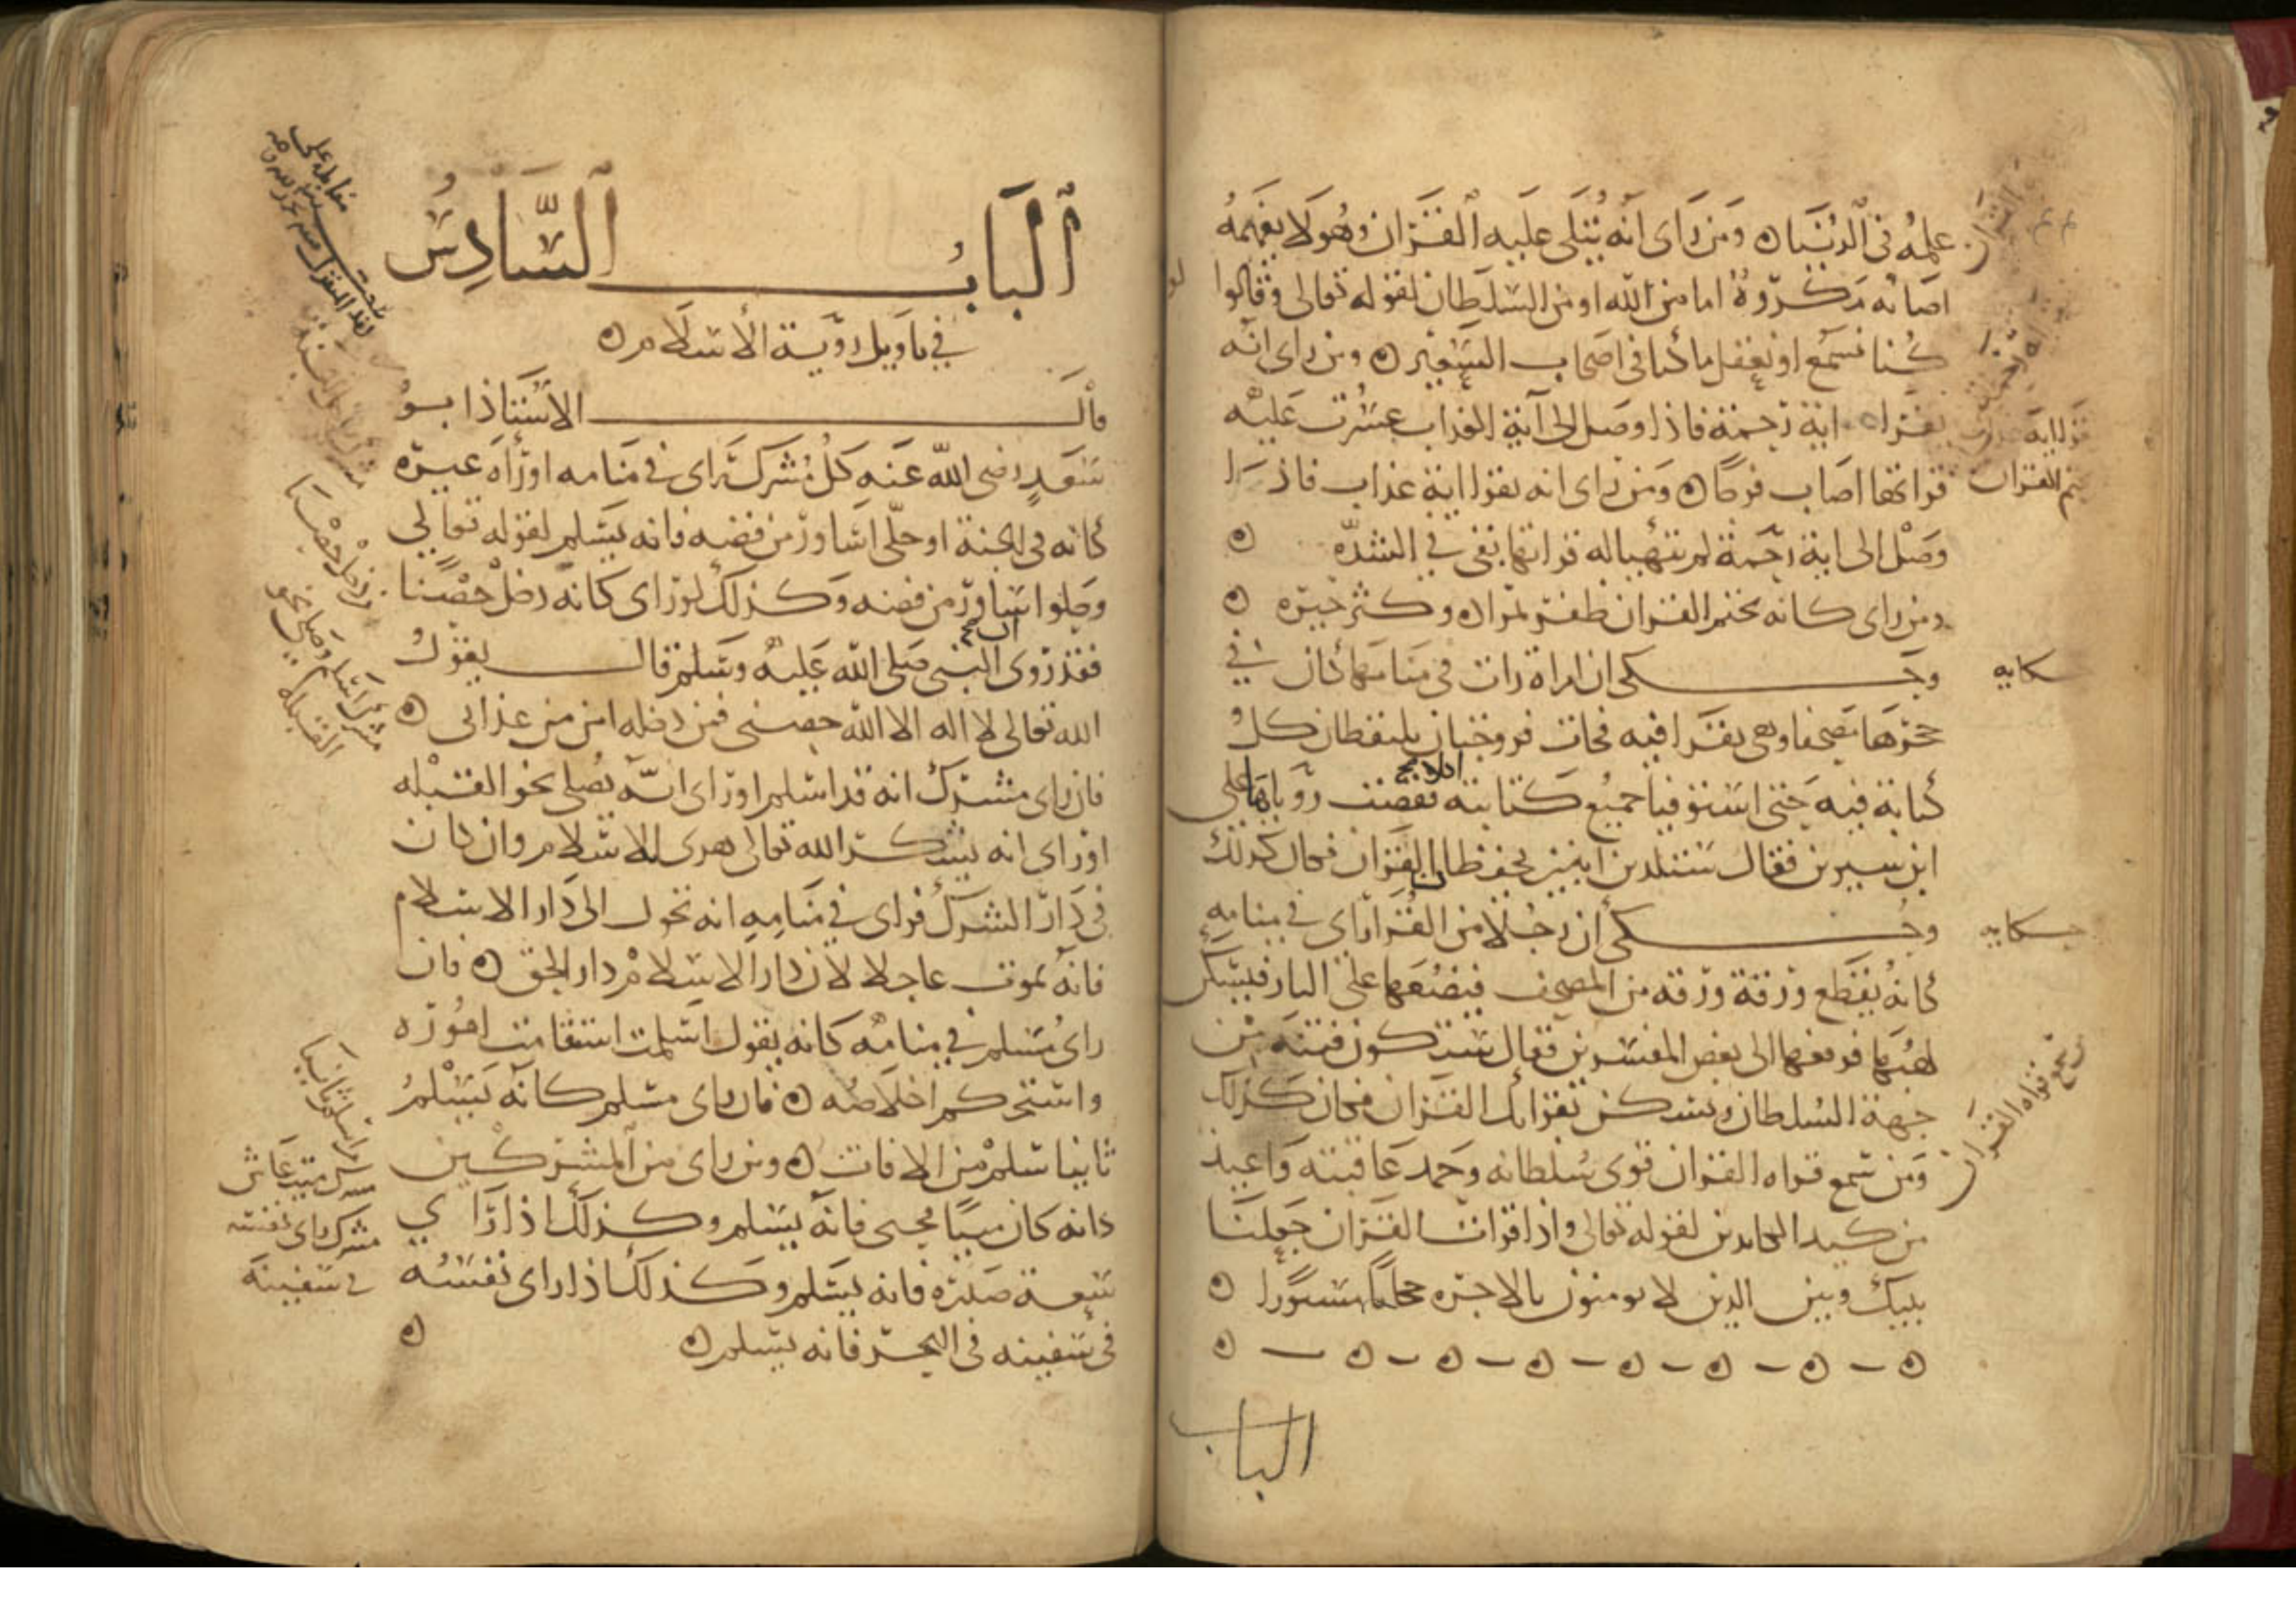 علمه في الدنيا ه ومن راى انه يتلى عليه القران وهو لا يفهمه
اصابه مكروه اما من الله او من السلطان لقوله تعالى وقالوا
كنا نسمع او نعقل ما كنا في اصحاب السعير ه ومن راى انه
يقرا اية رحمة فاذا وصل الى آية العذاب عسرت عليه
قراتها اصاب فرحا ه ومن راى انه يقرا اية عذاب فاذا
وصل الى اية رحمة لم يتهيا له قراتها بقي في الشدة ه
ومن راى كانه يختم القران ظفر بمراده وكثر خيره ه
وحكى ان امراة رات في منامها كان في
حجرها مصحفا وهي تقرا فيه فجات فروجتان يلتقطان كل
كتابة فيه حتى استوفيا جميع كتابته فقصت روياها على
ابن سيرين فقال ستلدين ابنين يحفظان القران فكان كذلك
وحكى ان رجلا من القرا راى في منامه
كانه يقطع ورقة ورقة من المصحف فيضعها على النار فيسكن
لهبها فرفعها الى بعض المفسرين فقال ستكون فتنة من
جهة السلطان وتسكن بقراتك القران فكان كذلك
ومن سمع قراه القران قوى سلطانه وحمد عاقبته واعيذ
من كيد الكايدين لقوله تعالى واذا قرات القران جعلنا
بينك وبين الذين لا يومنون بالاخره حجابا مستورا ه
الباب
حكايه
حكايه
الباب السادس
في تاويل روية الاسلام ه
قال الاستاذ ابو
سعد رضى الله عنه كل مشرك راى في منامه او رآه غيره
كانه في الجنة او حلى اساور من فضه فانه يسلم لقوله تعالى
وحلوا اساور من فضه وكذلك لو راى كانه دخل حصنا
فقد روى ان النبي صلى الله عليه وسلم قال يقول
الله تعالى لا اله الا الله حصني فمن دخله امن من عذابي ه
فان راى مشرك انه قد اسلم او راى انه يصلي نحو القبله
او راى انه يشكر الله تعالى هدى للاسلام وان كان
في دار الشرك فراى في منامه انه تحول الى دار الاسلام
فانه يموت عاجلا لان دار الاسلام دار الحق ه فان
راى مسلم في منامه كانه يقول اسلمت استقامت اموره
واستحكم اخلاصه ه فان راى مسلم كانه يسلم
ثانيا سلم من الافات ه ومن راى من المشركين
كانه كان ميتا فحيي فانه يسلم وكذلك اذا راى
سعة صدره فانه يسلم وكذلك اذا راى نفسه
في سفينه في البحر فانه يسلم ه
من دخل حصنا
مشرك اسلم وصلى نحو
القبله
من اسلم ثانيا
مشرك ميت عاش
مشرك راى نفسه
في سفينة